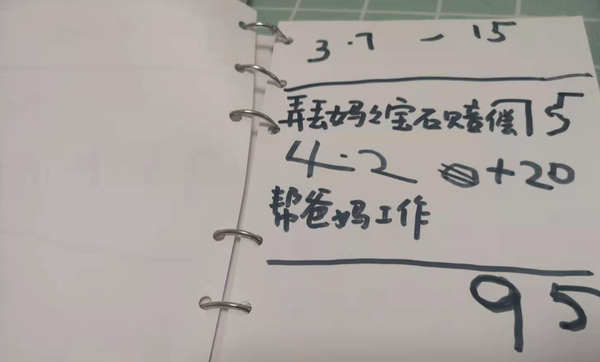 3.7 -15
弄丢妈々宝石赔偿 75
4.2 +20
帮爸妈工作
95